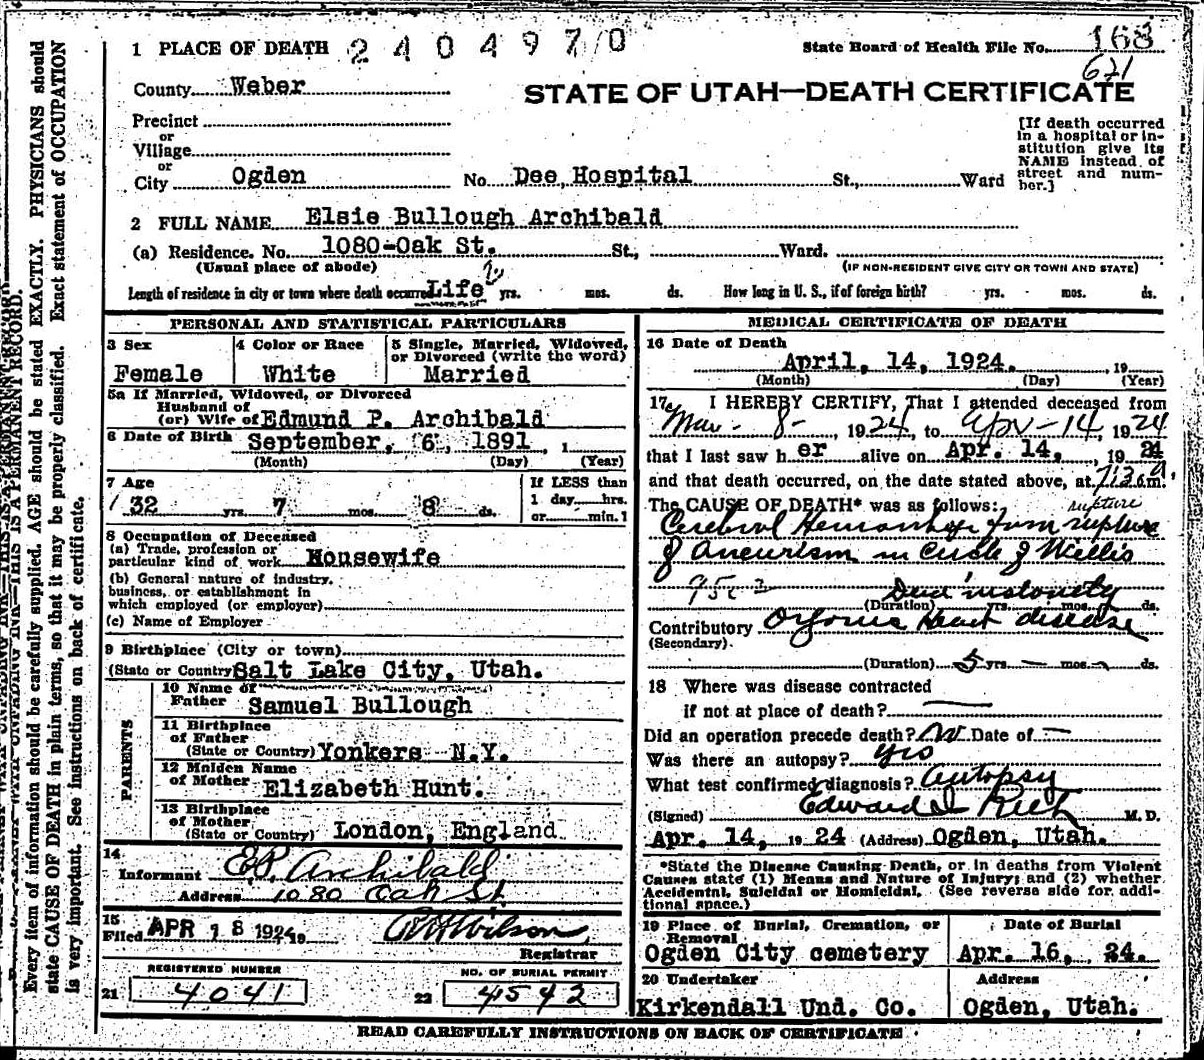 1 PLACE OF DEATH 2404970 State Board of Health File No. 168
621
County Weber
STATE OF UTAH—DEATH CERTIFICATE
Precinct
or
Village
or
City Ogden No. Dee Hospital St., Ward
[If death occurred
in a hospital or in-
stitution give its
NAME instead of
street and num-
ber.]
2 FULL NAME Elsie Bullough Archibald
(a) Residence. No. 1080-Oak St. St., Ward.
(Usual place of abode) (IF NON-RESIDENT GIVE CITY OR TOWN AND STATE)
Length of residence in city or town where death occurred Life yrs. mos. ds. How long in U. S., if of foreign birth? yrs. mos. ds.
PERSONAL AND STATISTICAL PARTICULARS
3 Sex
Female
4 Color or Race
White
5 Single, Married, Widowed,
or Divorced (write the word)
Married
5a If Married, Widowed, or Divorced
Husband of
(or) Wife of Edmund P. Archibald
6 Date of Birth September, 6, 1891, 1
(Month) (Day) (Year)
7 Age
32 yrs. 7 mos. 8 ds.
If LESS than
1 day, hrs.
or min.
8 Occupation of Deceased
(a) Trade, profession or
particular kind of work Housewife
(b) General nature of industry,
business, or establishment in
which employed (or employer)
(c) Name of Employer
9 Birthplace (City or town)
(State or Country) Salt Lake City, Utah.
PARENTS
10 Name of
Father Samuel Bullough
11 Birthplace
of Father
(State or Country) Yonkers N.Y.
12 Maiden Name
of Mother Elizabeth Hunt.
13 Birthplace
of Mother
(State or Country) London, England
14
Informant E.P. Archibald
Address 1080 Oak St
15
Filed APR 18 1924 19
Wilson
Registrar
REGISTERED NUMBER
21 4041
NO. OF BURIAL PERMIT
22 4542
MEDICAL CERTIFICATE OF DEATH
16 Date of Death
April, 14, 1924. , 19
(Month) (Day) (Year)
17 I HEREBY CERTIFY, That I attended deceased from
Mar - 8 - 1924, to Apr - 14, 1924
that I last saw her alive on Apr. 14, 1924
and that death occurred, on the date stated above, at m.
The CAUSE OF DEATH* was as follows: rupture
Cerebral Hemorrhage from rupture
of Aneurism in Circle of Willis
Died instantly
(Duration) yrs. mos. ds.
Contributory Organic Heart disease
(Secondary).
(Duration) 5 yrs — mos — ds.
18 Where was disease contracted
if not at place of death? —
Did an operation precede death? No Date of —
Was there an autopsy? yes
What test confirmed diagnosis? Autopsy
(Signed) Edward I. M.D.
Apr. 14, 1924 (Address) Ogden, Utah.
*State the Disease Causing Death, or in deaths from Violent
Causes state (1) Means and Nature of Injury; and (2) whether
Accidental, Suicidal or Homicidal. (See reverse side for addi-
tional space.)
19 Place of Burial, Cremation, or
Removal
Ogden City cemetery
Date of Burial
Apr. 16, 24.
20 Undertaker
Kirkendall Und. Co.
Address
Ogden, Utah.
READ CAREFULLY INSTRUCTIONS ON BACK OF CERTIFICATE
THIS IS A PERMANENT RECORD.
Every item of information should be carefully supplied. AGE should be stated EXACTLY. PHYSICIANS should
state CAUSE OF DEATH in plain terms, so that it may be properly classified. Exact statement of OCCUPATION
is very important. See instructions on back of certificate.